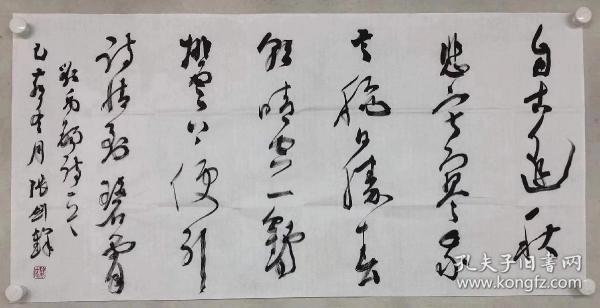 自古逢秋
悲寂寥我
言秋日胜春
朝晴空一鹤
排云上便引
诗情到碧霄
刘禹锡诗一首
月 张剑
孔夫子旧书网
www.kongfz.com